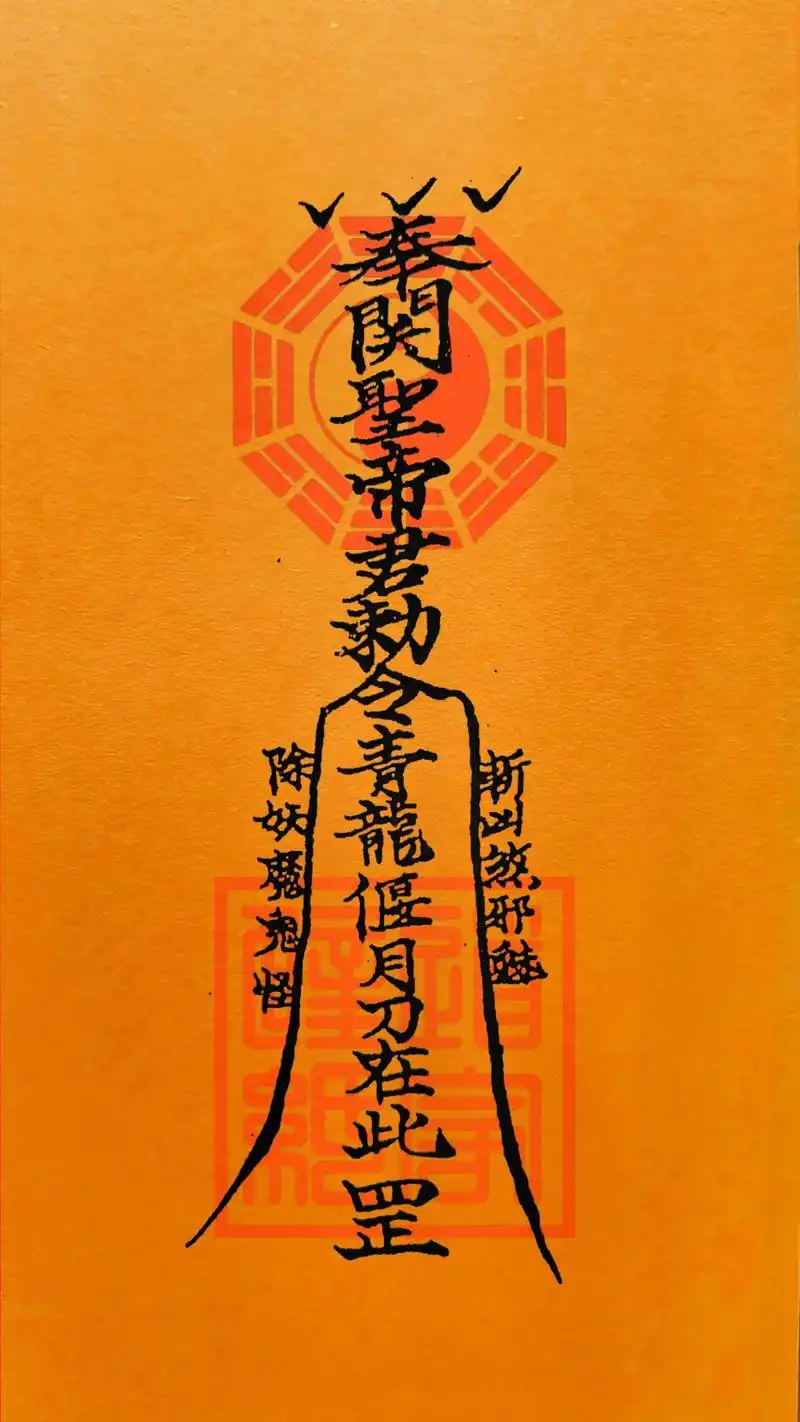 奉関聖帝君勅令青龍偃月刀在此罡
斬凶煞邪
除妖魔鬼怪